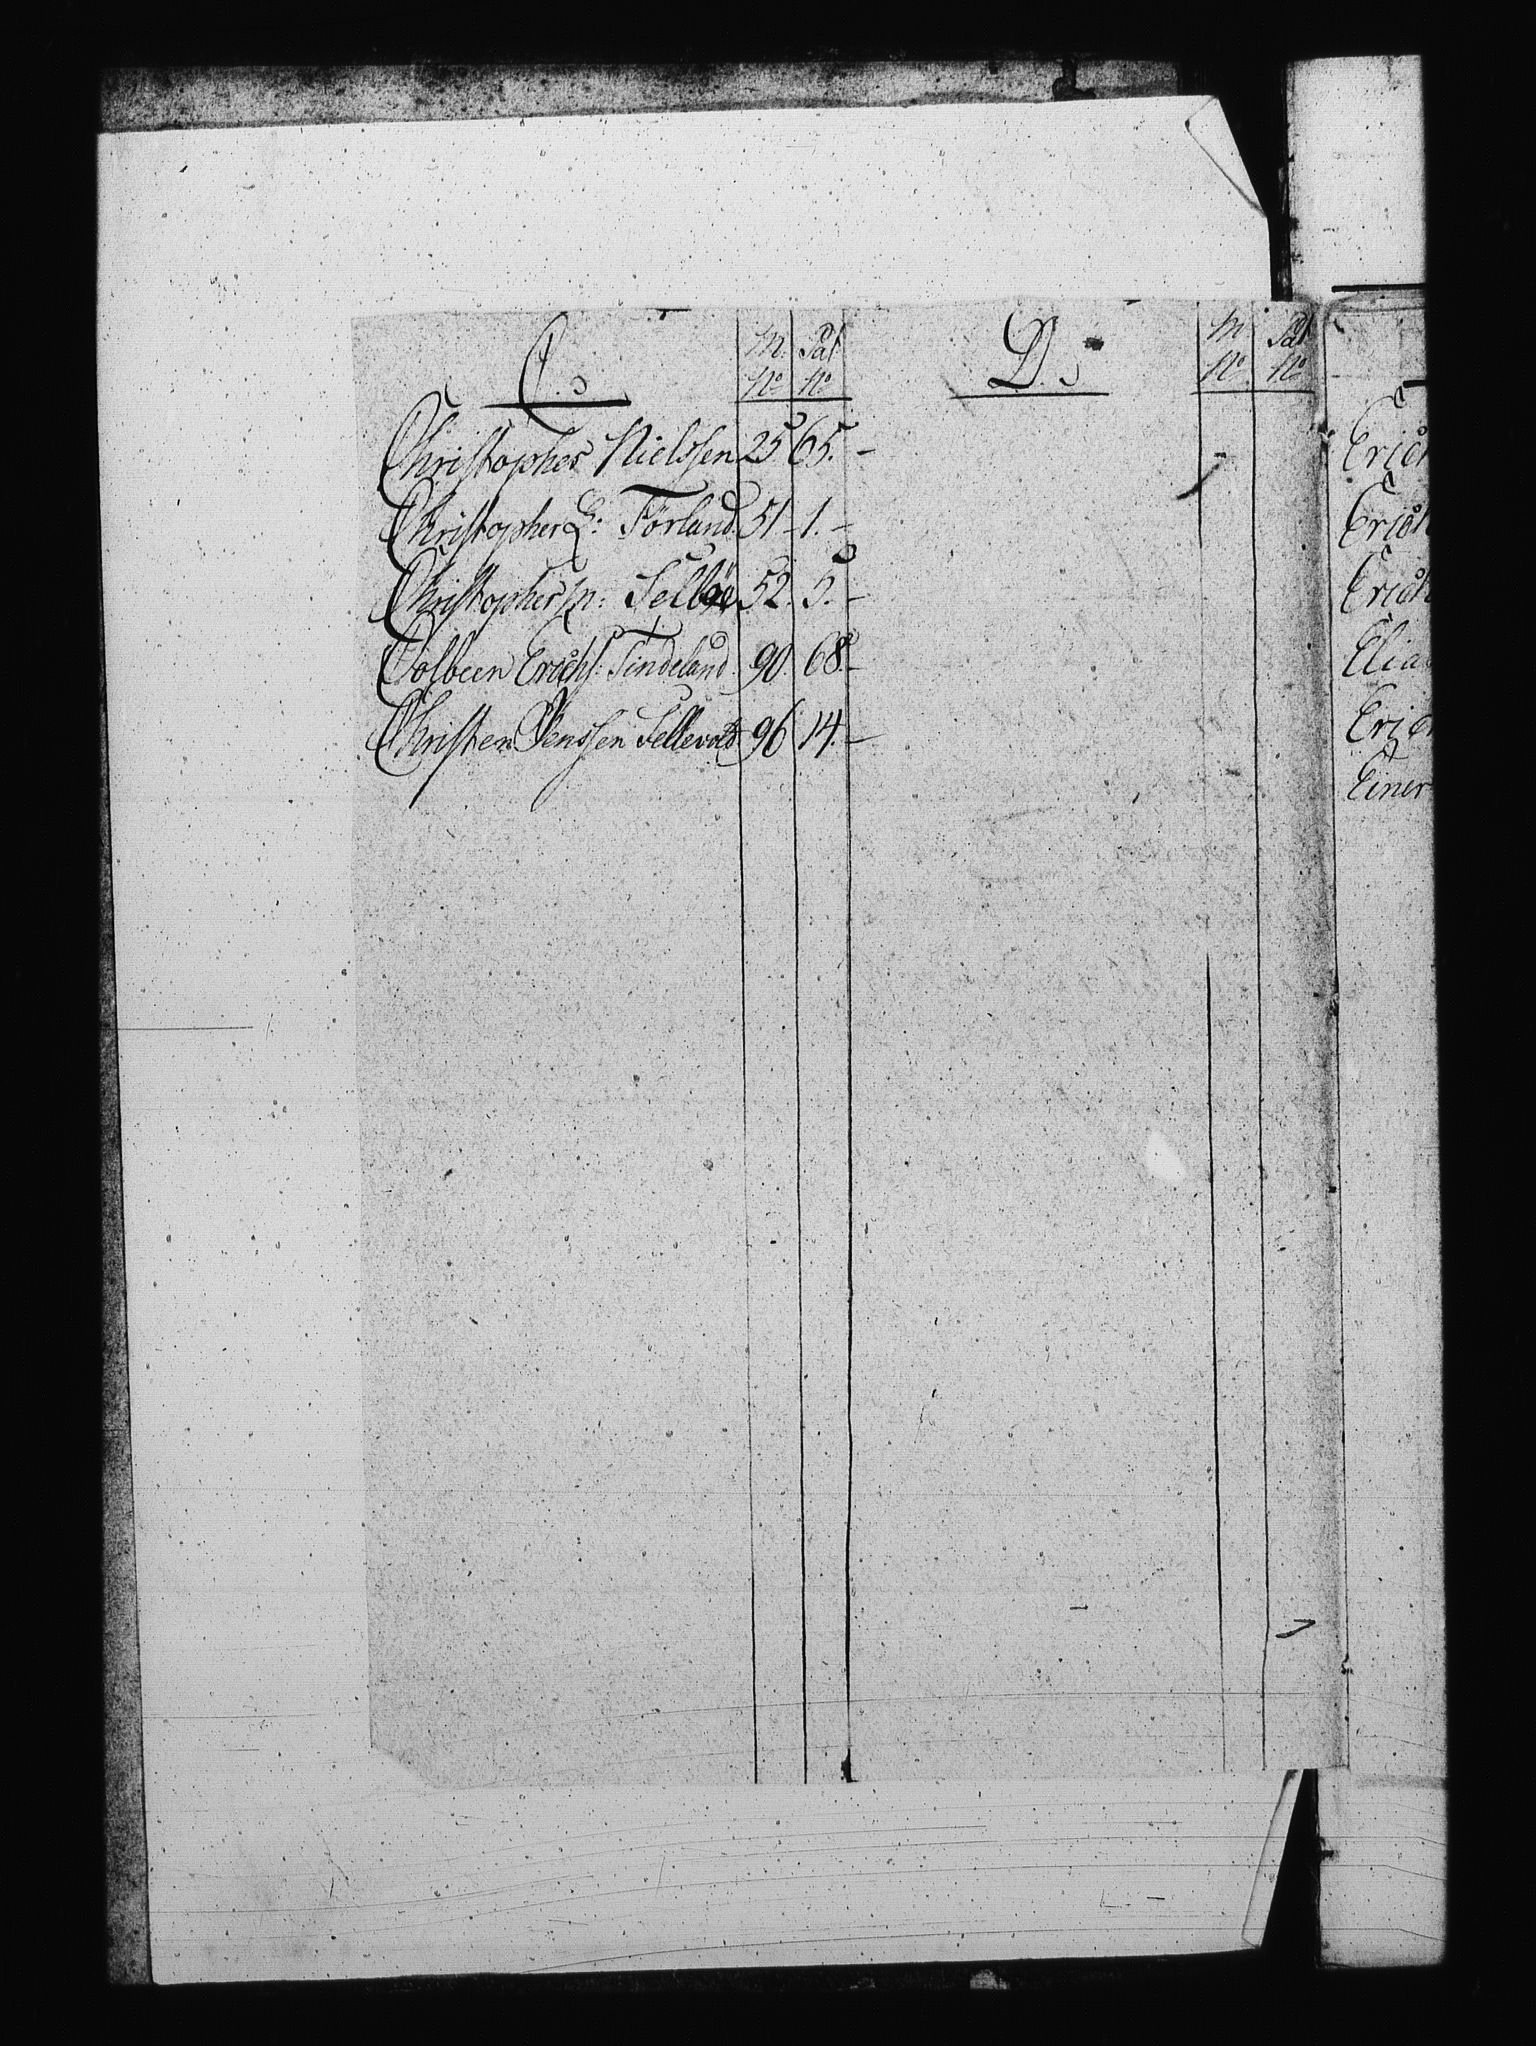 C. M. No Pat No
Christopher Nielssen 25 65.
Christopher L: Förland 51 1.
Christopher M: Selböe 52. 5.
Colbeen Erichs: Tindeland. 90. 68.
Christen Jenssen Sellevold 96 14.
D. M. No Pat No
Erich
Erich
Erich
Elia
Erich
Einer